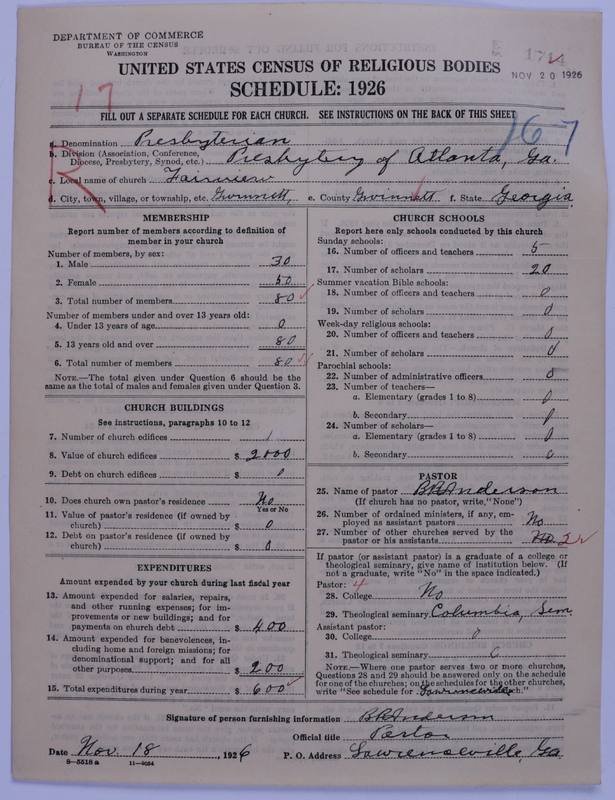 DEPARTMENT OF COMMERCE
BUREAU OF THE CENSUS
WASHINGTON
1714
NOV 20 1926
UNITED STATES CENSUS OF RELIGIOUS BODIES
SCHEDULE: 1926
17
FILL OUT A SEPARATE SCHEDULE FOR EACH CHURCH. SEE INSTRUCTIONS ON THE BACK OF THIS SHEET
167
R
a. Denomination Presbyterian
b. Division (Association, Conference, Diocese, Presbytery, Synod, etc.) Presbytery of Atlanta, Ga.
c. Local name of church Fairview
d. City, town, village, or township, etc. Gwinnett, e. County Gwinnett f. State Georgia
MEMBERSHIP
Report number of members according to definition of
member in your church
Number of members, by sex:
1. Male 30
2. Female 50
3. Total number of members 80
Number of members under and over 13 years old:
4. Under 13 years of age 0
5. 13 years old and over 80
6. Total number of members 80
NOTE.—The total given under Question 6 should be
the same as the total of males and females given under Question 3.
CHURCH BUILDINGS
See instructions, paragraphs 10 to 12
7. Number of church edifices 1
8. Value of church edifices $ 2000
9. Debt on church edifices $ 0
10. Does church own pastor's residence No
Yes or No
11. Value of pastor's residence (if owned by
church) $ 0
12. Debt on pastor's residence (if owned by
church) $ 0
EXPENDITURES
Amount expended by your church during last fiscal year
13. Amount expended for salaries, repairs,
and other running expenses; for im-
provements or new buildings; and for
payments on church debt $ 400
14. Amount expended for benevolences, in-
cluding home and foreign missions; for
denominational support; and for all
other purposes $ 200
15. Total expenditures during year $ 600
CHURCH SCHOOLS
Report here only schools conducted by this church
Sunday schools:
16. Number of officers and teachers 5
17. Number of scholars 20
Summer vacation Bible schools:
18. Number of officers and teachers 0
19. Number of scholars 0
Week-day religious schools:
20. Number of officers and teachers 0
21. Number of scholars 0
Parochial schools:
22. Number of administrative officers 0
23. Number of teachers—
a. Elementary (grades 1 to 8) 0
b. Secondary 0
24. Number of scholars—
a. Elementary (grades 1 to 8) 0
b. Secondary 0
PASTOR
25. Name of pastor B R Anderson
(If church has no pastor, write "None")
26. Number of ordained ministers, if any, em-
ployed as assistant pastors No
27. Number of other churches served by the
pastor or his assistants 2
If pastor (or assistant pastor) is a graduate of a college or
theological seminary, give name of institution below. (If
not a graduate, write "No" in the space indicated.)
Pastor: 4
28. College No
29. Theological seminary Columbia, Sem.
Assistant pastor:
30. College 0
31. Theological seminary 0
NOTE.—Where one pastor serves two or more churches,
Questions 28 and 29 should be answered only on the schedule
for one of the churches; on the schedules for the other churches,
write "See schedule for Lawrenceville church."
Signature of person furnishing information B R Anderson
Official title Pastor
Date Nov. 18, 1926 P. O. Address Lawrenceville, Ga.
8—5518 a 11—9054